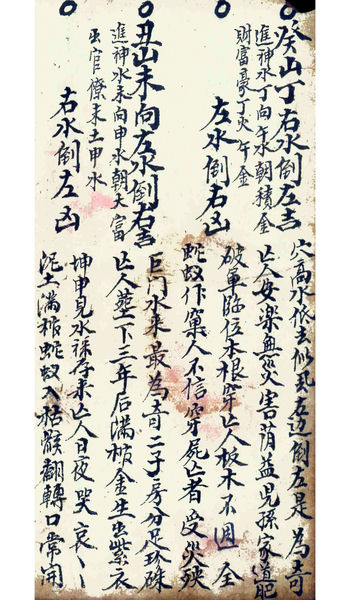 癸山丁右水倒左吉
進神水丁向午水朝積金
財富豪丁火午金
左水倒右凶
丑山未向左水倒右吉
進神水未向申水朝大富
出官僚未土申水
右水倒左凶
穴高水低去似乱右边倒左是為奇
亡人安楽無災害荫益児孫家道肥
破軍臨位本根穿亡人板木不週全
蛇蚁作窠人不信穿屍亡者受災殃
巨门水来最為奇二子房分足珍珠
亡人塟下三年后满棺金生生紫衣
坤申見水禄存来亡人日夜哭哀〻
泥土满棺蛇蚁入枯骸翻轉口常開